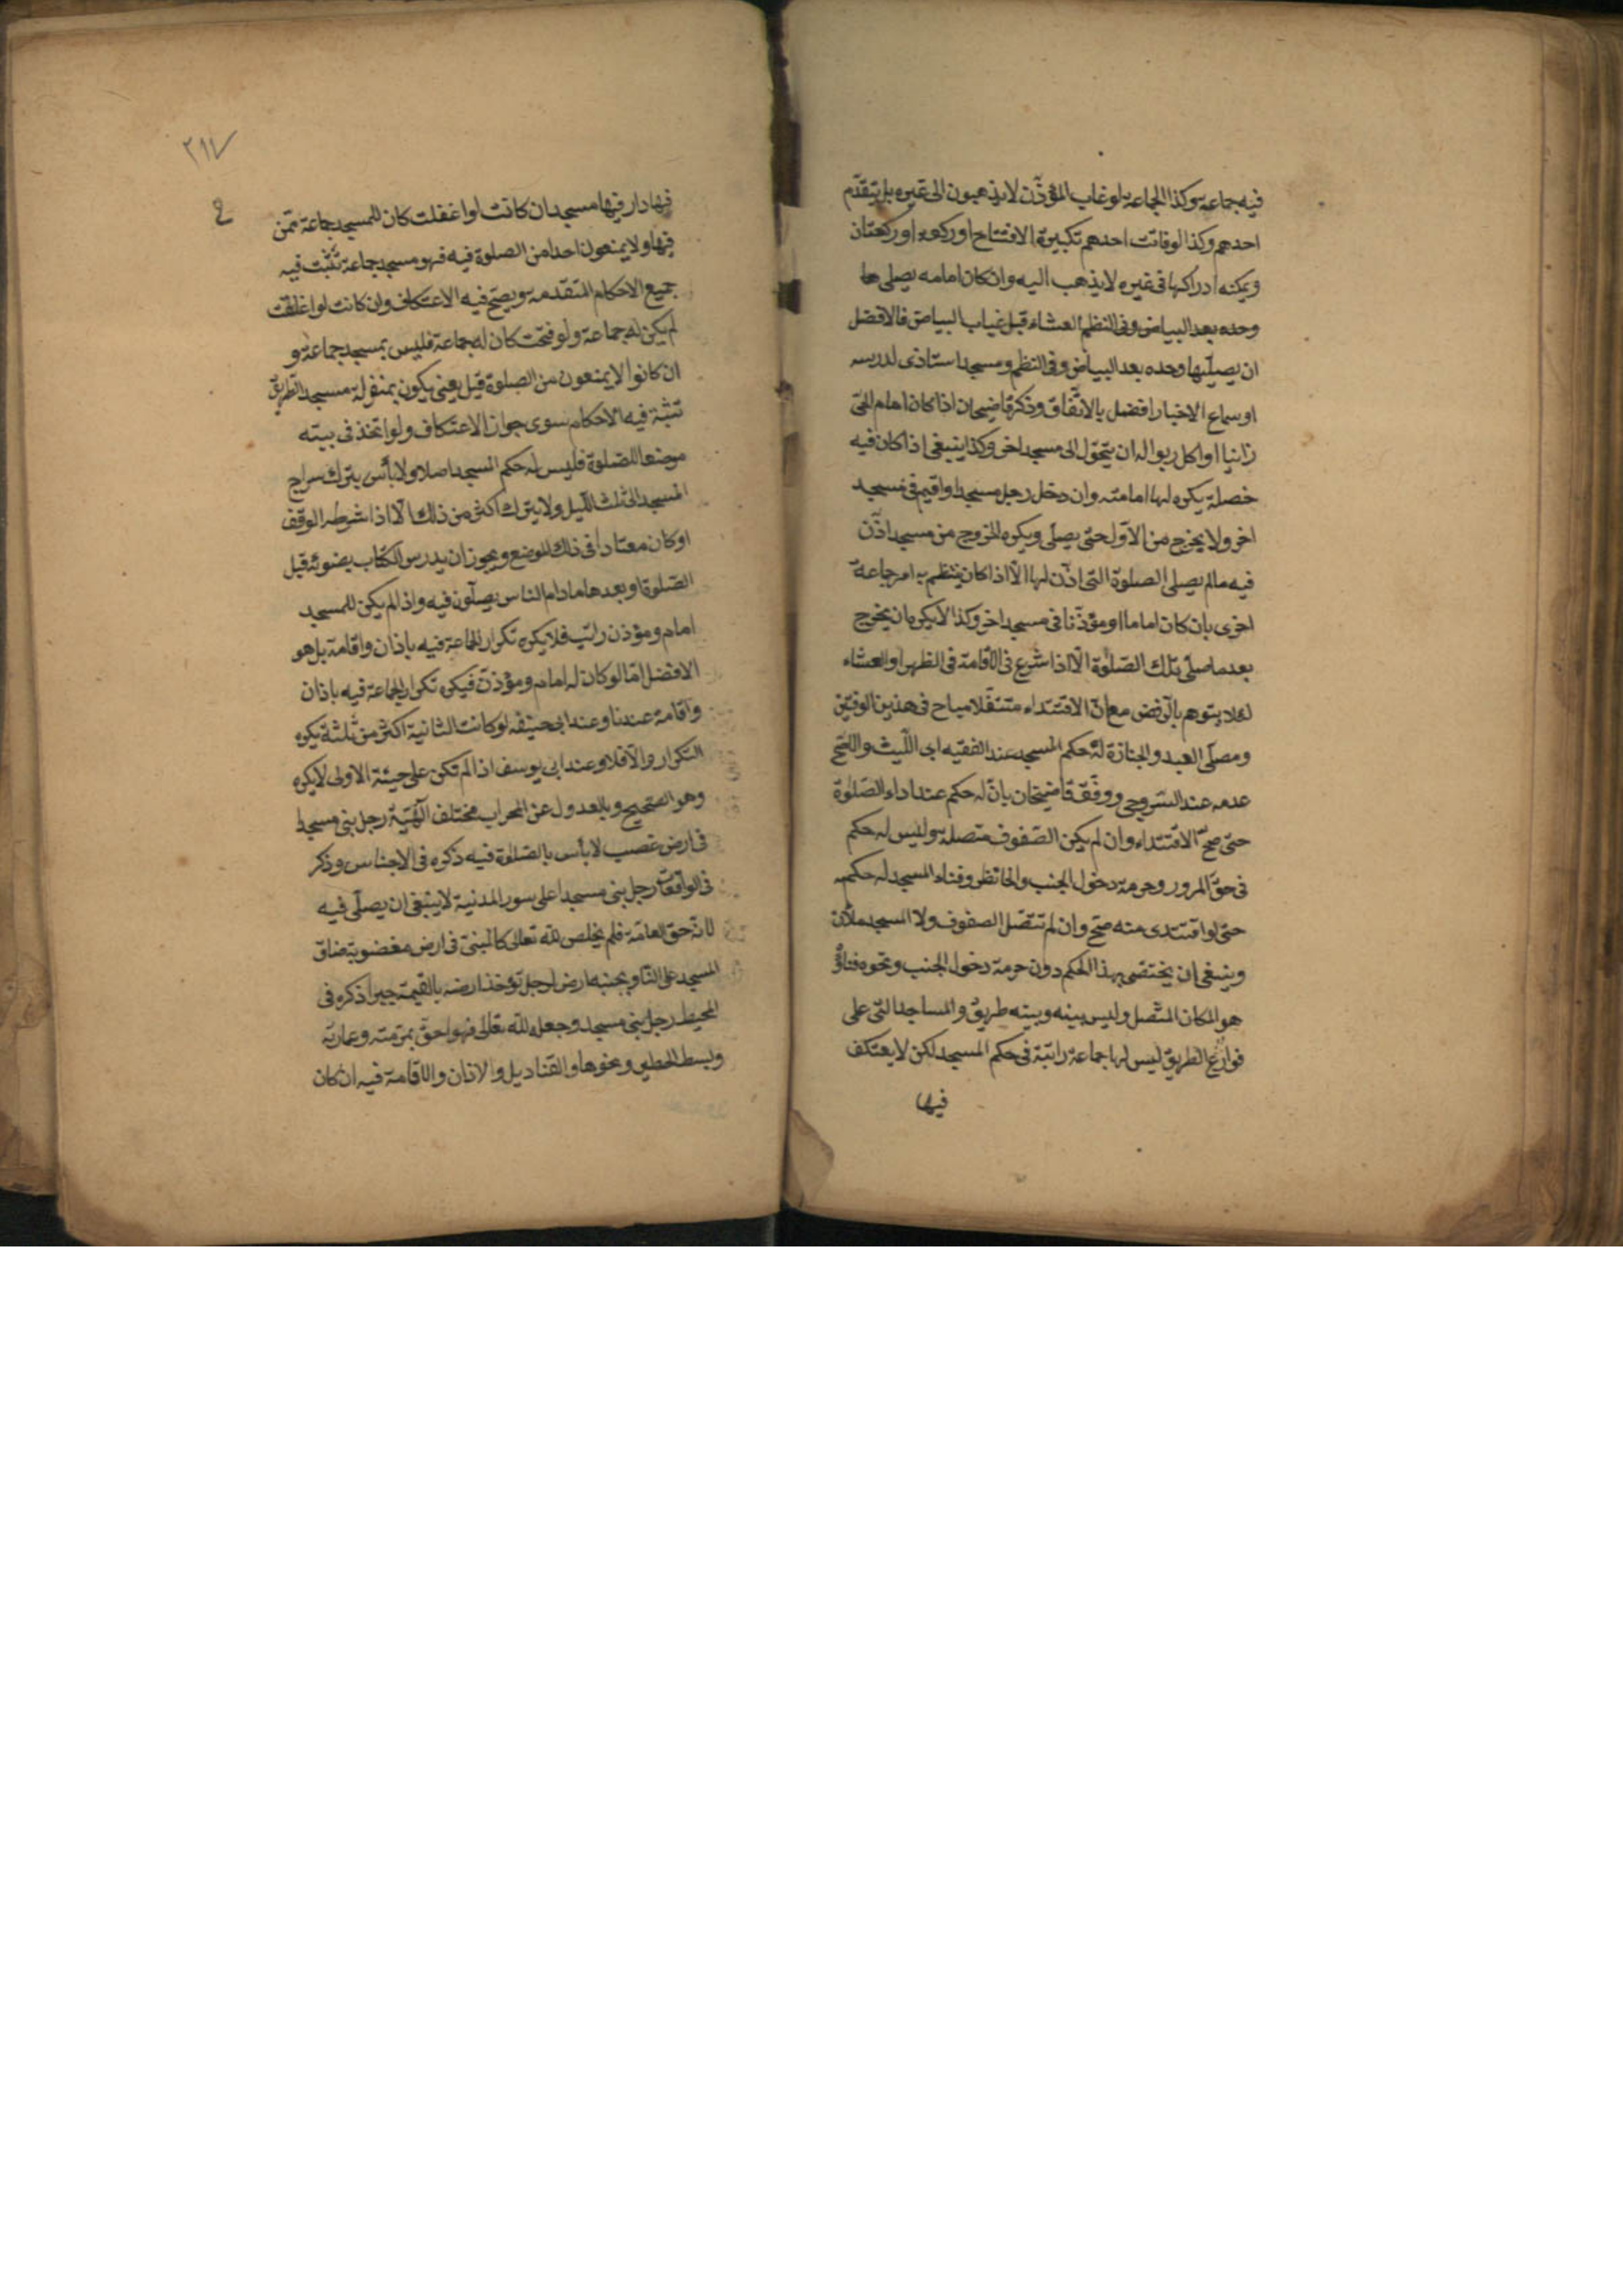 فيه جماعة وكذا الجماعة لو غاب المؤذّن لا يذهبون الى غيره بل يتقدّم
احدهم وكذا لو فاتت احدهم تكبيرة الافتتاح او ركعة او ركعتان
ويمكنه ادراكها فى غيره لا يذهب اليه وان كان امامه يصلى ها
وحده بعد البياض وفى النظم العشاء قبل غياب البياض فالافضل
ان يصلّيها وحده بعد البياض وفى النظم ومسجد استاذى لدرسه
او سماع الاخبار افضل بالاتّفاق وذكر قاضيخان اذا كان امام الحىّ
زانيا او اكل ربوا له ان يتحوّل الى مسجد اخر وكذا ينبغى اذا كان فيه
خصلة يكره لها امامته وان دخل رجل مسجدا واقيم فى مسجد
اخر ولا يخرج من الاوّل حتى يصلى ويكره الخروج من مسجد اذّن
فيه مالم يصلى الصلوة التى اذّن لها الّا اذا كان ينتظم به امر جماعة
اخرى بان كان اماما او مؤذّنا فى مسجد اخر وكذا لا يكره ان يخرج
بعدما صلّى تلك الصّلوة الّا اذا شرع فى الاقامة فى الظهر او العشاء
لئلا يتوهم بالرّفض مع انّ الاقتداء متنفّلا مباح فى هذين الوقتين
ومصلّى العيد والجنازة له حكم المسجد عند الفقيه ابى اللّيث والاصّح
عدمه عند السّروجى ووفّق قاضيخان بانّ له حكم عند اداء الصّلوة
حتى صحّ الاقتداء وان لم يكن الصّفوف متصلة وليس له حكم
فى حقّ المرور وحرمة دخول الجنب والحائض وفناء المسجد له حكمه
حتى لو اقتدى منه صحّ وان لم تتّصل الصفوف ولا المسجد ملآن
وينبغى ان يختصّ بهذا الحكم دون حرمة دخول الجنب ونحوه فناؤه
هو المكان المتّصل وليس بينه وبينه طريق والمساجد التى على
قوارع الطريق ليس لها جماعة راتبة فى حكم المسجد لكن لا يعتكف
فيها
٢١٧
فيها دار فيها مسجد ان كانت لو اغفلت كان للمسجد جماعة ممّن
فيها ولا يمنعون احدا من الصلوة فيه فهو مسجد جماعة تثبت فيه
جميع الاحكام المتقدمة ويصحّ فيه الاعتكاف وان كانت لو اغلقت
لم يكن له جماعة ولو فتحت كان له جماعة فليس بمسجد جماعة و
ان كانوا لا يمنعون من الصلوة قيل يعنى يكون بمنزلة مسجد الطريق
تثبت فيه الاحكام سوى جواز الاعتكاف ولو اتخذ فى بيته
موضعا للصّلوة فليس له حكم المسجد اصلا ولا بأس بترك سراج
المسجد الى ثلث اللّيل ولا يترك اكثر من ذلك الّا اذا شرط الوقف
او كان معتادا فى ذلك الموضع ويجوز ان يدرس الكتاب بضوئه قبل
الصّلوة وبعدها مادام الناس يصلّون فيه واذا لم يكن للمسجد
امام ومؤذن راتب فلا يكره تكرار الجماعة فيه باذان واقامة بل هو
الافضل امّا لو كان له امام ومؤذّن فيكره تكرار الجماعة فيه باذان
واقامة عندنا وعند ابى حنيفه لو كانت الثانية اكثر من ثلثة يكره
التكرار والّا فلا وعند ابى يوسف اذا لم تكن على هيئة الاولى لا يكره
وهو الصّحيح وبالعدول عن المحراب مختلف الهيئة رجل بنى مسجدا
فى ارض غصب لا بأس بالصّلوة فيه ذكره فى الاجناس وذكر
فى الواقعات رجل بنى مسجدا على سور المدينة لا ينبغى ان يصلّى فيه
لانّه حق العامّة فلم يخلص للّه تعالى كالمبنىّ فى ارض مغصوبة ضاق
المسجد على النّاس وبجنبه ارض لرجل تؤخذ ارضه بالقيمة جبرا ذكره فى
المحيط رجل بنى مسجدا وجعله للّه تعالى فهو احقّ بمرمّته وعمارته
وبسط الحصير ونحوها والقناديل والاذان والاقامة فيه ان كان